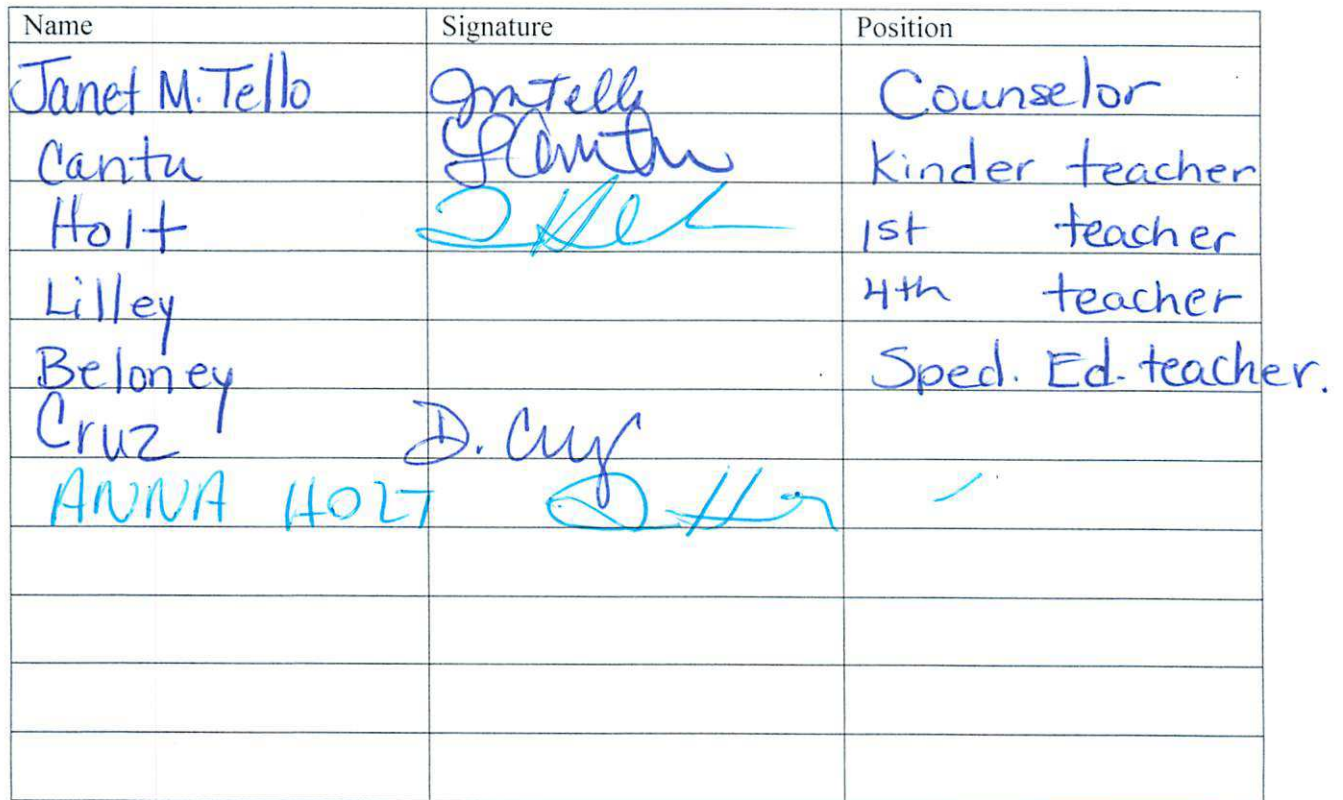 Name Signature Position
Janet M. Tello JmTello Counselor
Cantu Cantu Kinder teacher
Holt 1st teacher
Lilley 4th teacher
Beloney Sped. Ed. teacher.
Cruz D. Cruz
ANNA HOLT